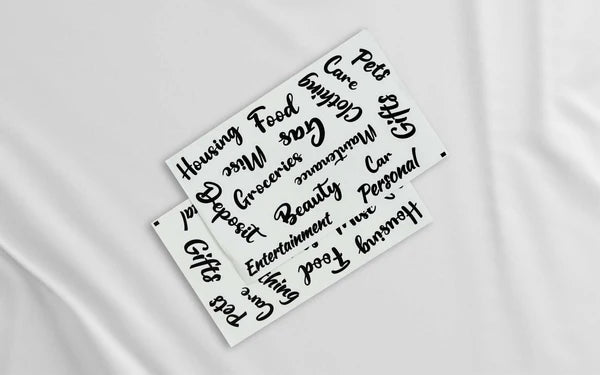 Housing
Food
Clothing
Care
Pets
Misc
Gas
Gifts
Deposit
Groceries
Maintenance
Car
Beauty
Personal
Entertainment
Gifts
Pets
Care
thing
Food
Housing